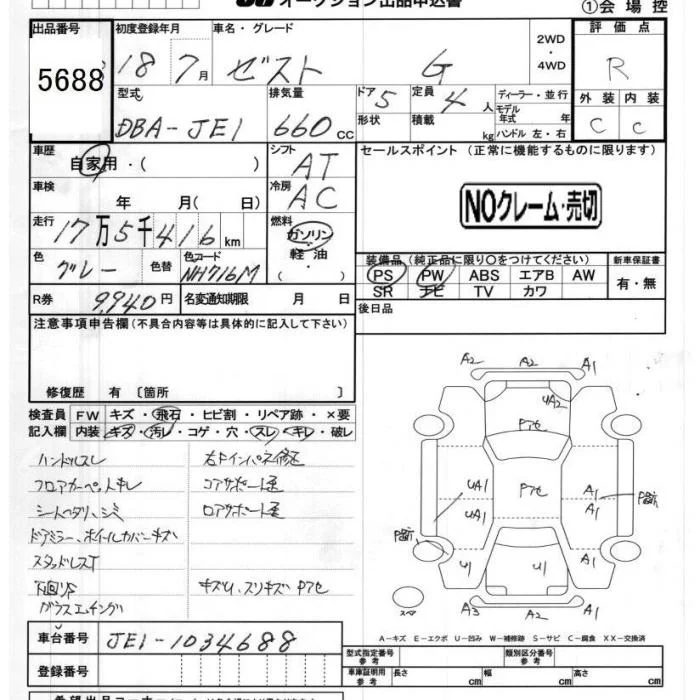 オークション出品申込書
①会場控
出品番号
5688
初度登録年月
18 7月
車名・グレード
ゼスト G
2WD
・
4WD
評価点
R
外装 内装
C C
型式
DBA-JE1
排気量
660 CC
ドア 5
形状
定員 4 人
積載 kg
ディーラー・並行
モデル
年式 年
ハンドル 左・右
車歴
自家用・( )
シフト
AT
セールスポイント (正常に機能するものに限ります)
NOクレーム・売切
車検
年 月( 日)
冷房
AC
走行
17万5千416km
燃料
ガソリン
軽油
( ・ )
色
グレー
色替
色コード
NH716M
装備品 (純正品に限り〇をつけてください)
新車保証書
PS PW ABS エアB AW
有・無
SR ナビ TV カワ
R券 9,940円
名変通知期限 月 日
後日品
注意事項申告欄(不具合内容等は具体的に記入して下さい)
修復歴 有〔箇所 〕
検査員
記入欄
FW キズ・飛石・ヒビ割・リペア跡・×要
内装 キズ・汚レ・コゲ・穴・スレ・キレ・破レ
ハンドルスレ
フロアカーペットキレ
シートヘタリ、シミ
ドアミラー、ホイールカバーキズ
スタッドレスT
下回りS
ガラスエッチング
右Fインパネ修正
コアサポート歪
ロアサポート歪
キズU、スリキズ Pアセ
A2 A2 A1
UA2
Pアセ
UA1 Pアセ A1 P箇所
UA1 A1
P箇所
U1 U1 A1
スペア
A3 A2 A1
A-キズ E-エクボ U-凹み W-補修跡 S-サビ C-腐食 XX-交換済
車台番号
JE1-1034688
登録番号
型式指定番号
参考
類別区分番号
参考
車庫証明用
参考
長さ cm 幅 cm 高さ cm
希望出品コーナー